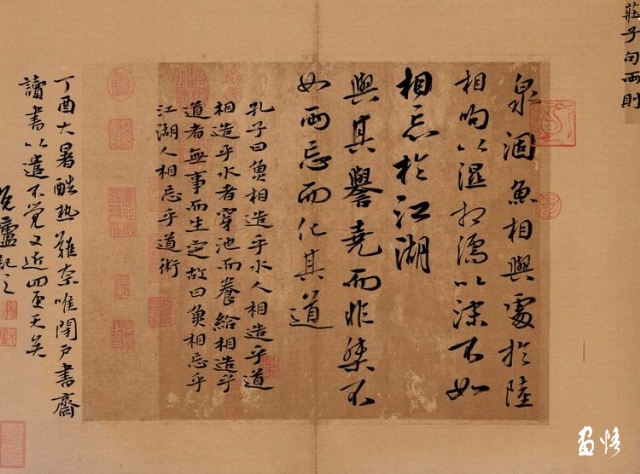 莊子句兩則
泉涸魚相與處於陸
相呴以濕相濡以沫不如
相忘於江湖
與其譽堯而非桀不
如兩忘而化其道
孔子曰魚相造乎水人相造乎道
相造乎水者穿池而養給相造乎
道者無事而生定故曰魚相忘乎
江湖人相忘乎道術
丁酉大暑酷熱難奈唯閉戶書齋
讀書以遣不覺又近四五天矣
盧記之